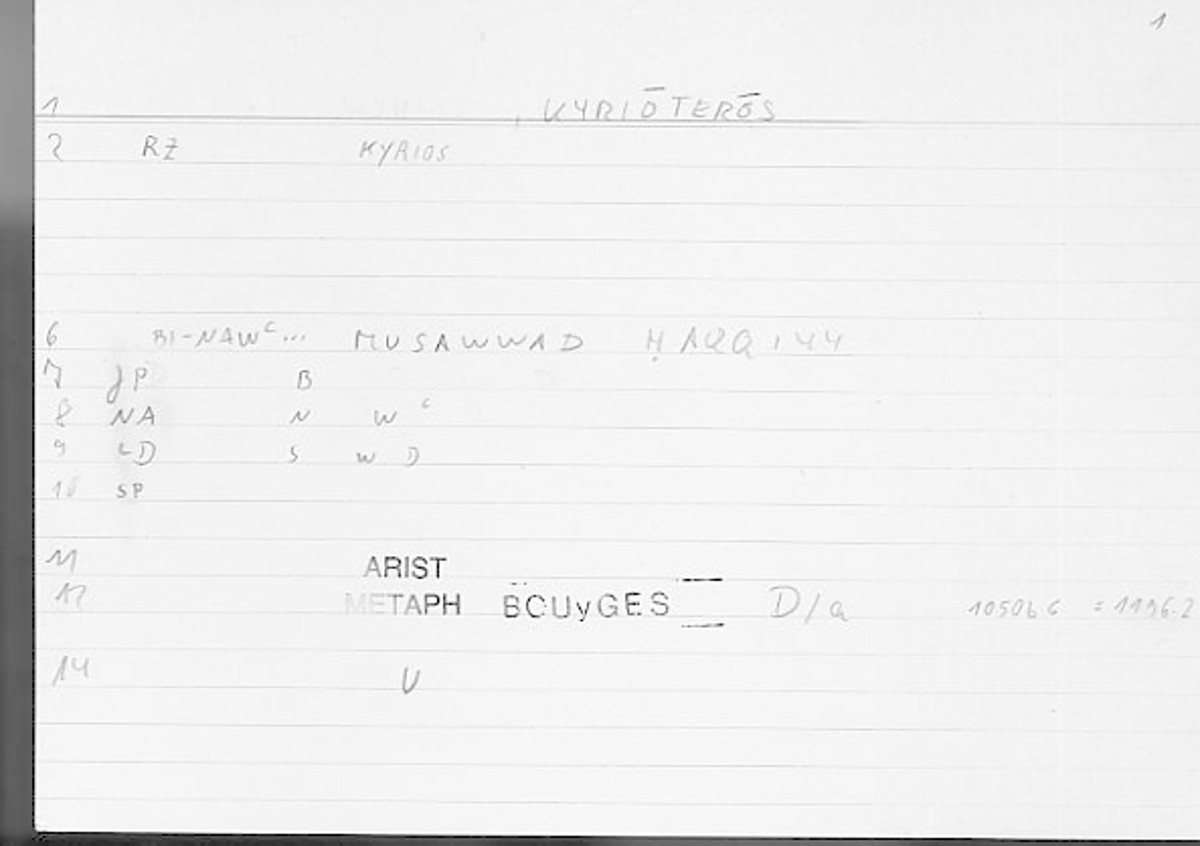 1
1 KYRIŌTERŌS
2 RZ KYRIOS
6 BI-NAWᶜ... MUSAWWAD ḤAQQIYY
7 JP B
8 NA N W ᶜ
9 LD S W D
10 SP
11 ARIST
12 METAPH BOUyGES D/a 1050b6 = 1196.2
14 V